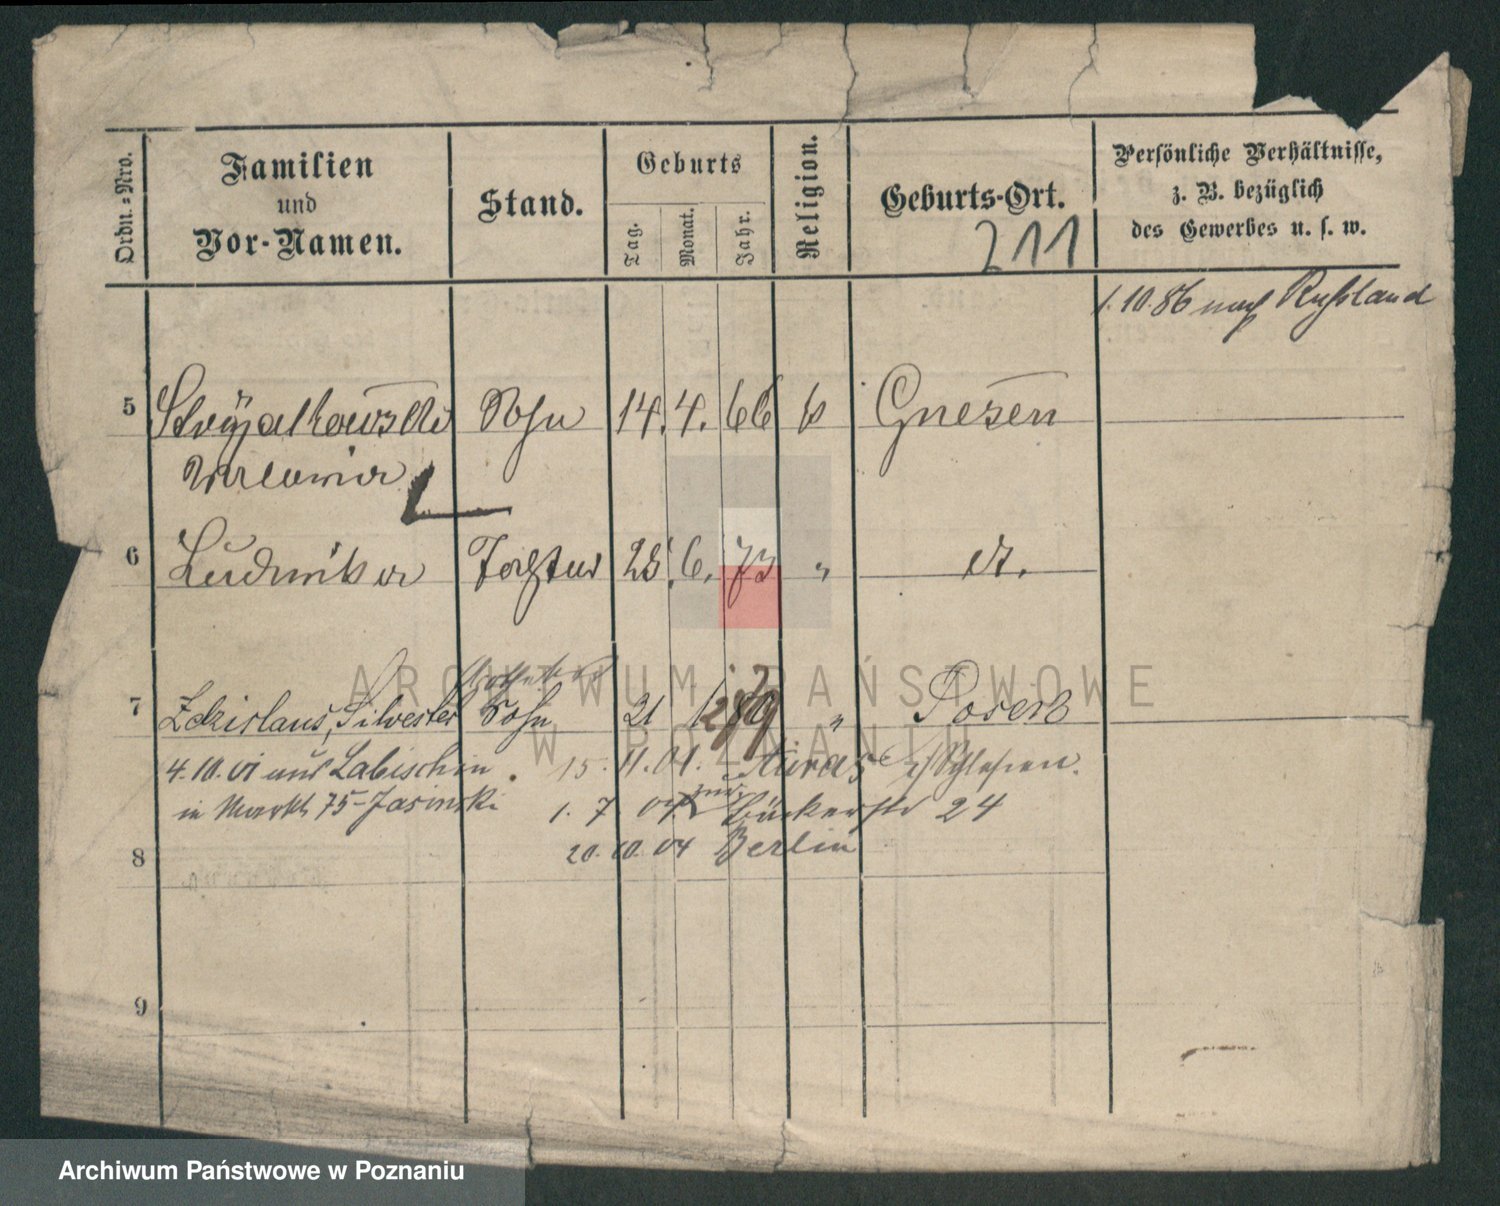 Ordn.-Nro.
Familien
und
Vor-Namen.
Stand.
Geburts
Tag.
Monat.
Jahr.
Religion.
Geburts-Ort.
211
Persönliche Verhältnisse,
z. B. bezüglich
des Gewerbes u. s. w.
1.10.86 nach Rußland
5 Sohn 14. 4. 66 k Gnesen
6 Ludwika Tochter 28. 6. 73 " dt.
7 Zdzislaus, Silvester Sohn 21 12 89 " Posen
4.10.01 aus Labischin. 15. 11. 01. Auras i/Schlesien.
in Markt 75 - Jasinski 1. 7. 04 zur. Bäckerstr 24
20. 10. 04 Berlin
8
9
ARCHIWUM PAŃSTWOWE
W POZNANIU
Archiwum Państwowe w Poznaniu